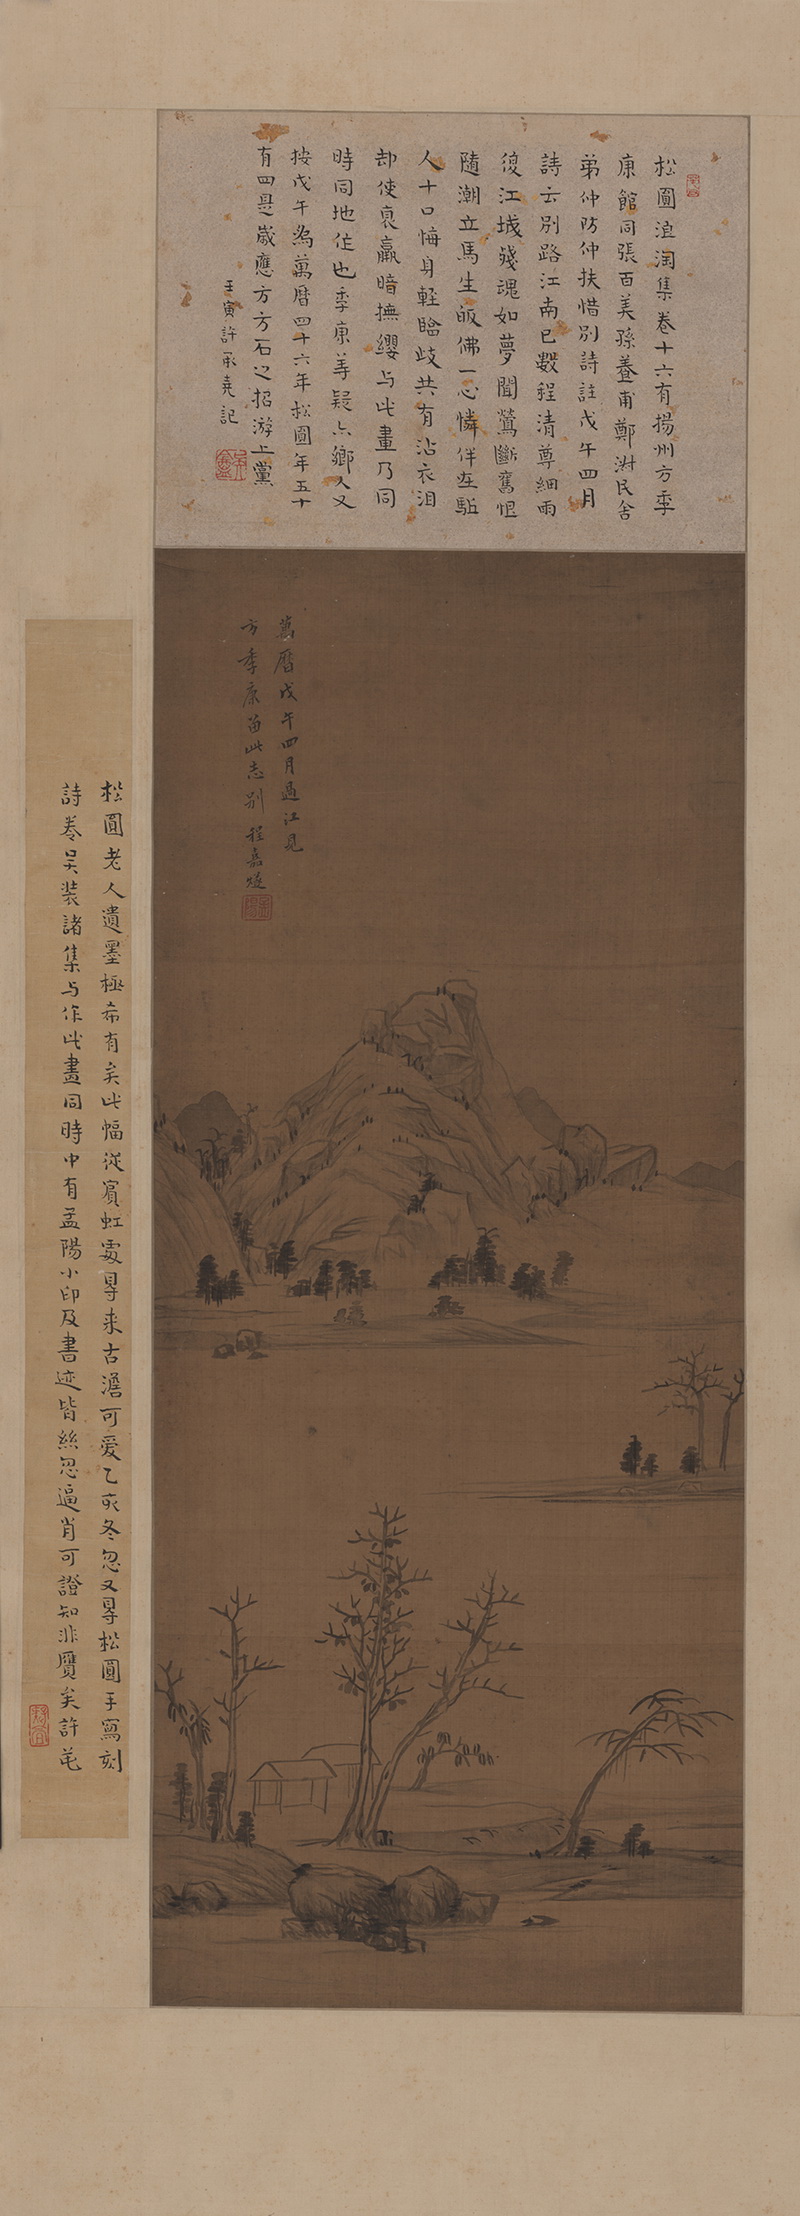 松圓浪淘集卷十六有揚州方季
康館同張百美孫養甫鄭澍民舍
弟仲防仲扶惜別詩註戊午四月
詩云別路江南已數程清尊細雨
復江城殘魂如夢聞鶯斷舊恨
隨潮立馬生皈佛一心憐伴在駈
人十口悔身輕臨歧共有沾衣泪
却使衰羸暗撫纓与此畫乃同
時同地作也季康等疑亦鄉人又
按戊午為萬曆四十六年松圓年五十
有四是歲應方方石之招游上黨
壬寅許承堯記
萬曆戊午四月過江見
方季康留此志別 程嘉燧
孟陽
松圓老人遺墨極希有矣此幅從賓虹處尋来古澹可爱乙亥冬忽又尋松圓手寫刻
詩卷吴装諸集与作此畫同時中有孟陽小印及書迹皆絲忽逼肖可證知非贋矣許芚